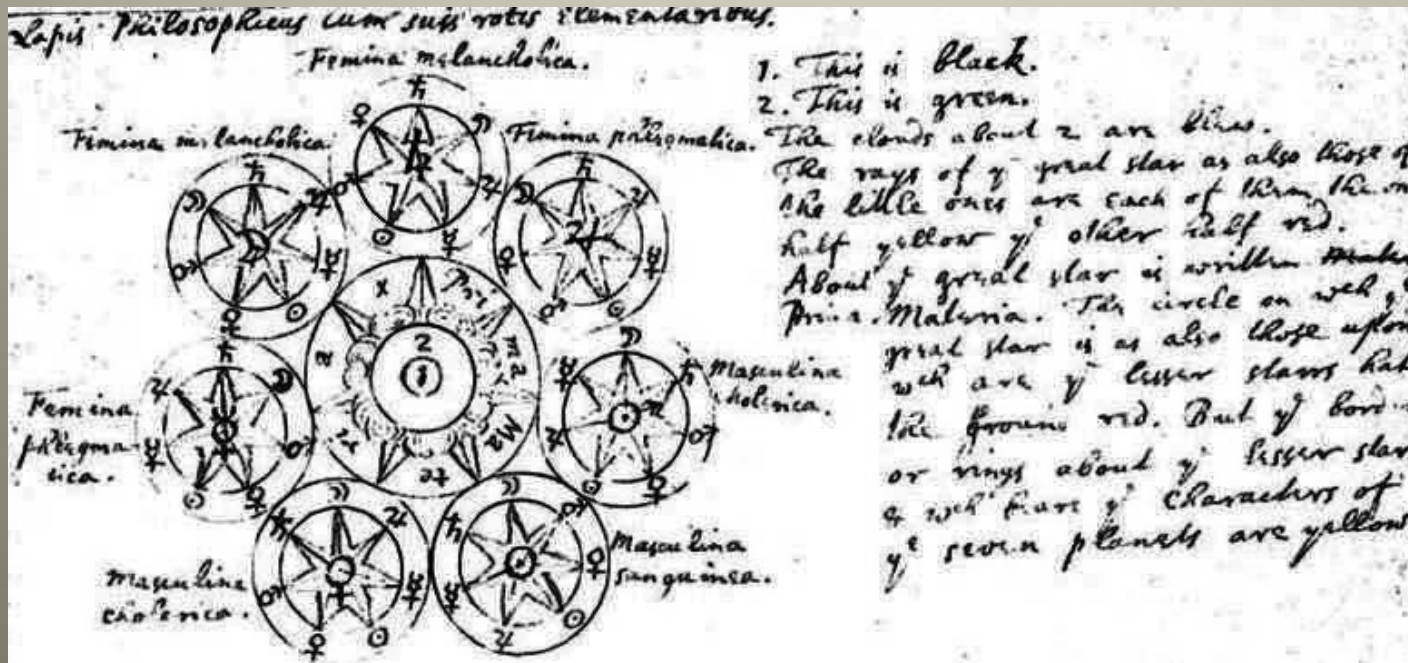 Lapis Philosophicus cum suis rotis elementaribus.
Femina melancholica.
Femina melancholica.
Femina phlegmatica.
Femina
phlegma
tica.
Masculina
cholerica.
Masculina
sanguinea.
Masculina
cholerica.
2
1
Pri
ma
Ma
te
ri
a
x
1. This is black.
2. This is green.
The clouds about 2 are blew.
The rays of yᵉ great star as also those of
the little ones are each of them the one
half yellow yᵉ other half red.
About yᵉ great star is written
Prima Materia. The circle on wch yᵉ
great star is as also those upon
wch are yᵉ lesser starrs hath
the ground red. But yᵉ bord
or rings about yᵉ lesser star
& wch beare yᵉ characters of
yᵉ seven planets are yellow